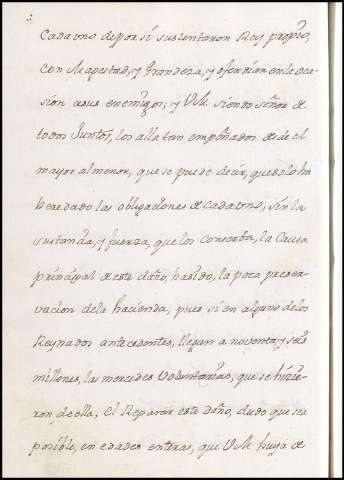 Cada uno de por si sustentaron Rey propio,
con Magestad, y Grandeza, y ofendian en la oca-
sion a sus enemigos, y VM siendo señor de
todos Juntos, los alla tan empeñados desde el
mayor al menor, que se puede decir, que solo ha
heredado las obligaciones de cada uno, sin la
sustancia, y fuerza, que los conserba, la Causa
principal de este daño, ha sido, la poca preser-
vacion de la hacienda, pues si en alguno de los
Reynados antecedentes, llegan a noventa, y seis
millones, las mercedes voluntarias, que se hizie-
ron de ella, el Reparar este daño, dudo que sea
posible, en edades enteras, que VM haya de